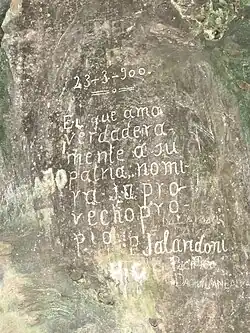 23-3-900.
El que ama
verdadera-
mente á su
patria, no mi-
ra su pro-
vecho pro-
pio
Jalandoni